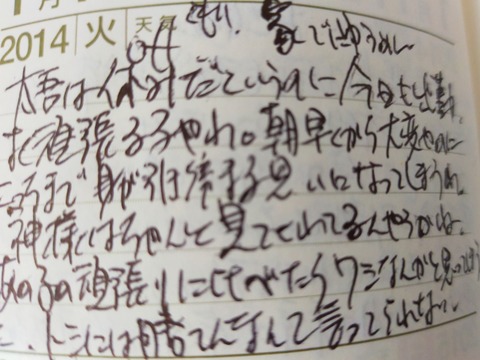 2014 火 天気 くもり、家でゆうめし
off
大吾は休みだというのに今日も出勤。
よく頑張る子やわ。朝早くから大変やのに
こっちまで身が引き締まる思いになってしまうわ。
神様はちゃんと見てくれてるんやろかね。
あの子の頑張りにくらべたらワシなんかと思ってしまう
トシには勝てんなんて言ってられない。